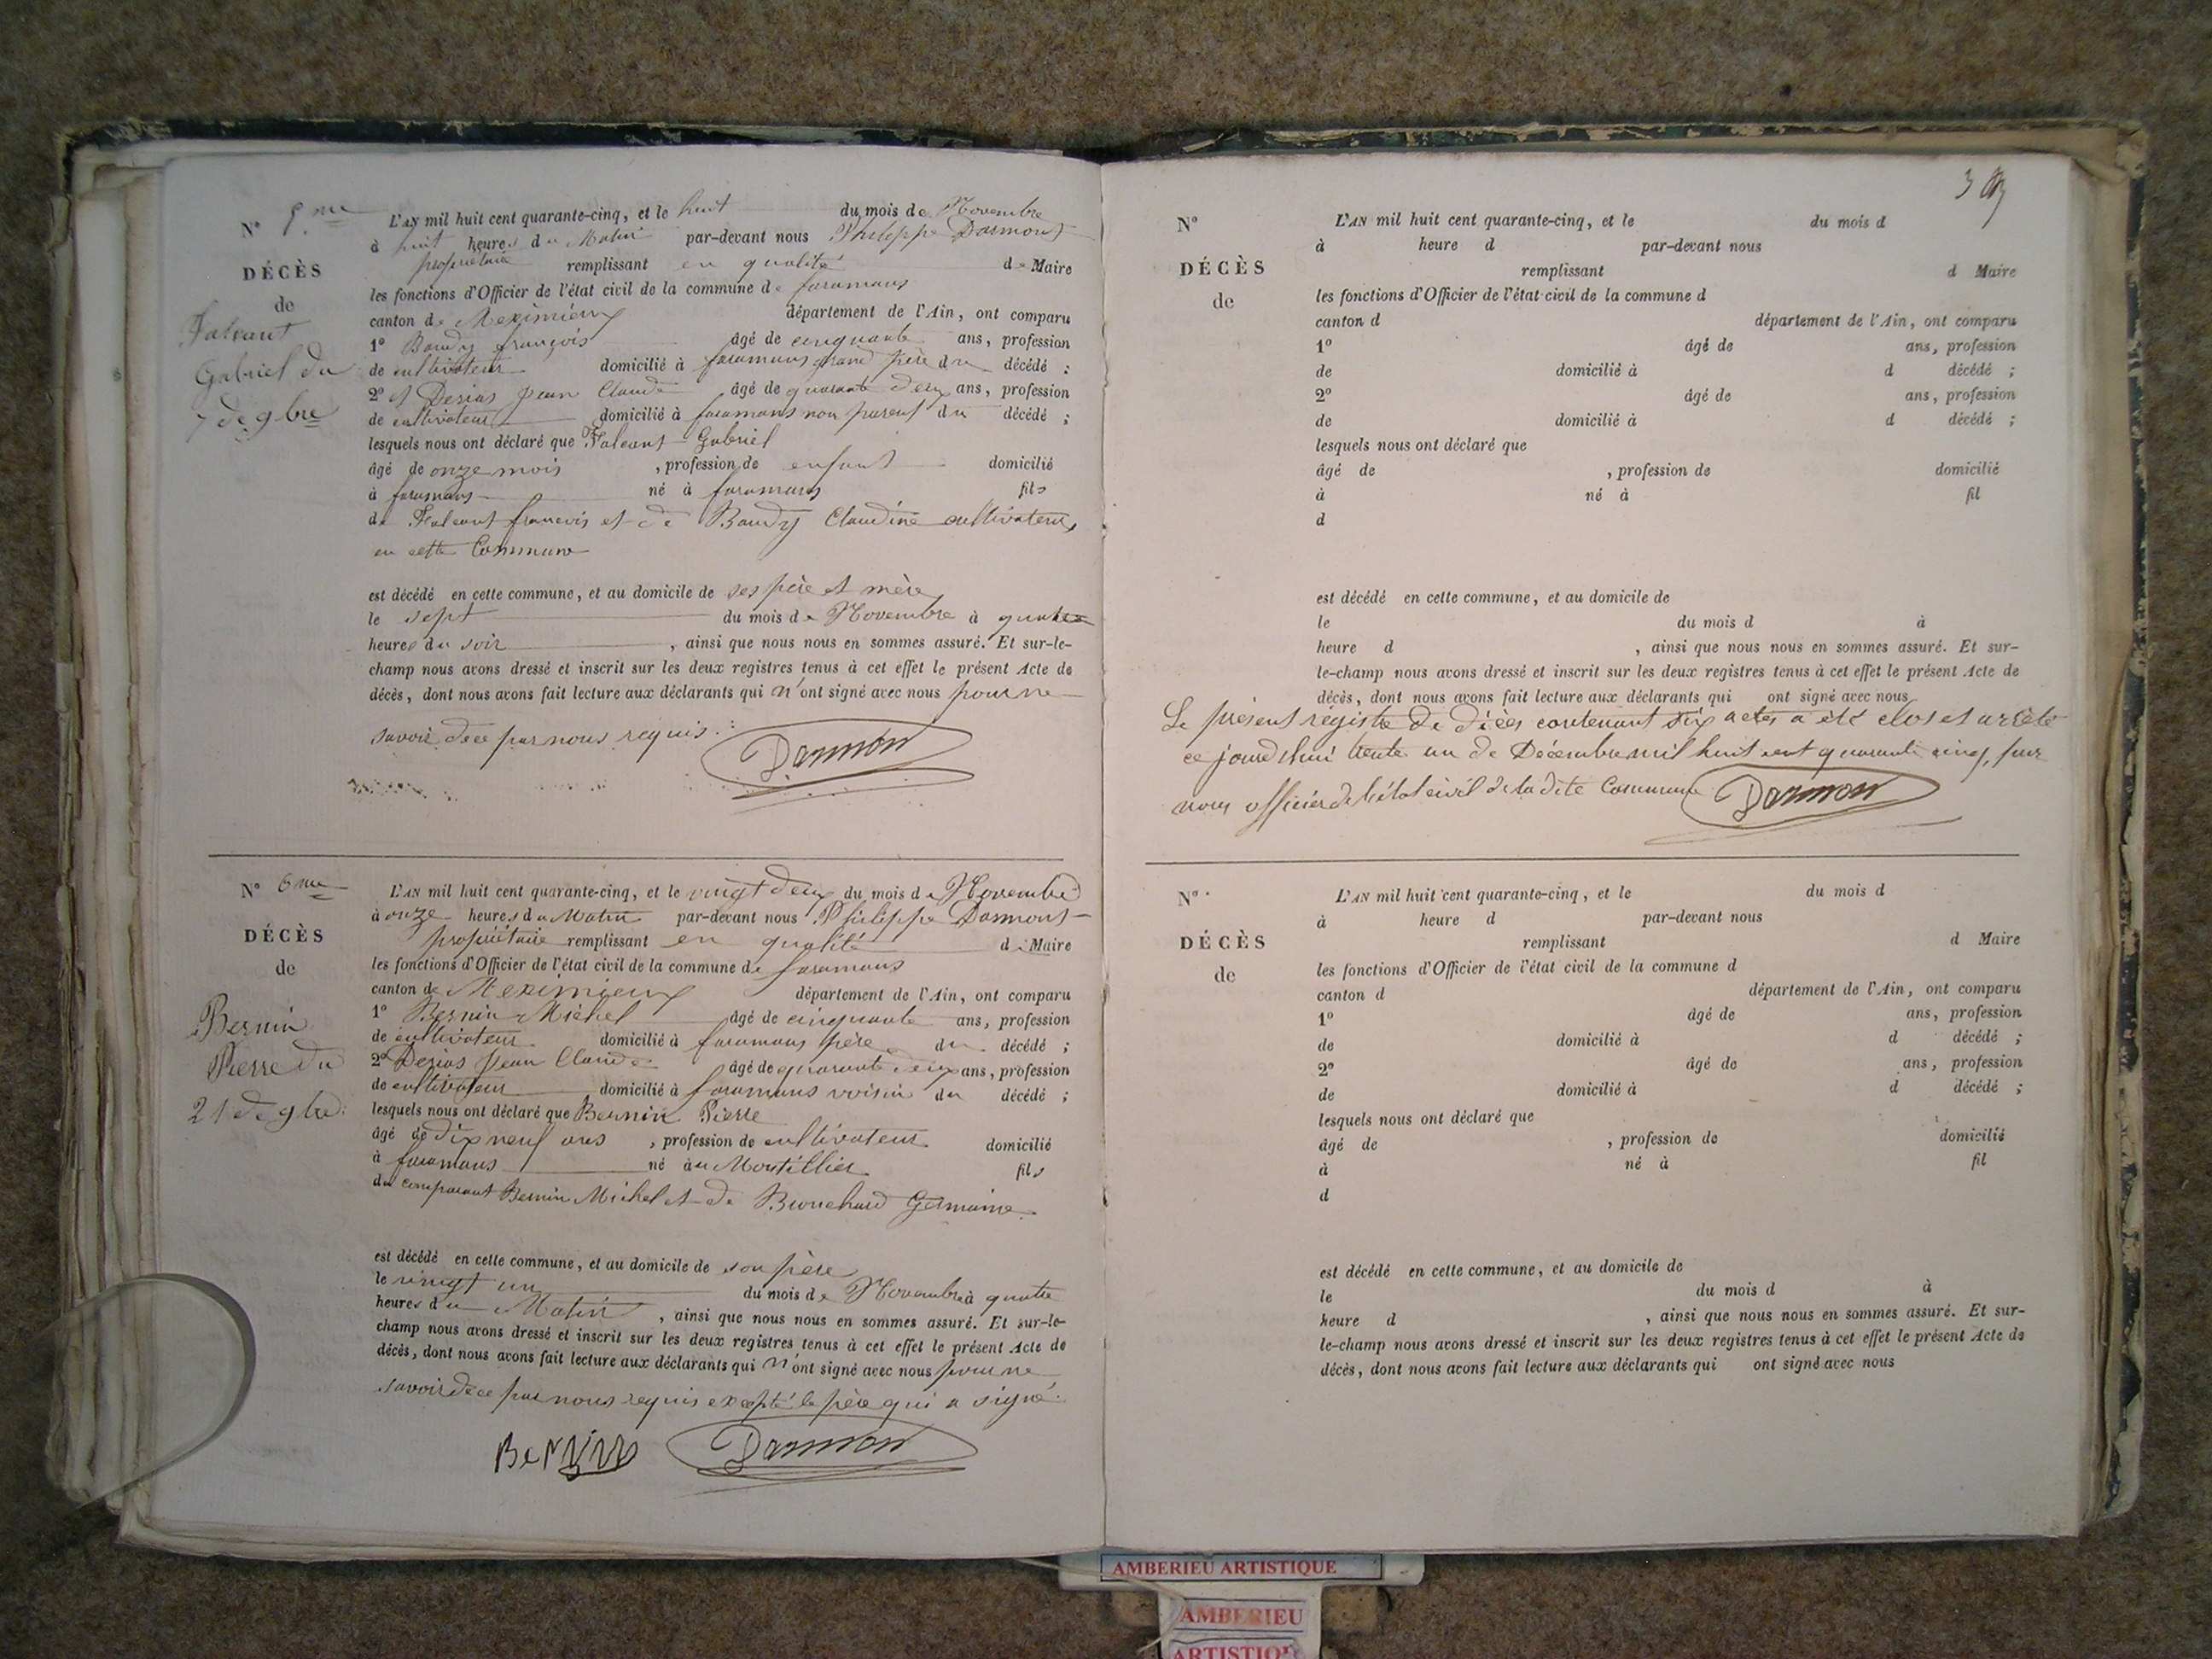 N° 5.me
DÉCÈS
de
Falcant
Gabriel du
7 de 9bre
L'AN mil huit cent quarante-cinq, et le huit du mois de Novembre
à huit heures du Matin par-devant nous Philippe Darmont
propriétaire remplissant en qualité de Maire
les fonctions d'Officier de l'état civil de la commune de faramans
canton de Meximieux département de l'Ain, ont comparu
1° Baudy françois âgé de cinquante ans, profession
de cultivateur domicilié à faramans grand père du décédé ;
2° et Derias Jean Claude âgé de quarante deux ans, profession
de cultivateur domicilié à faramans non parent du décédé ;
lesquels nous ont déclaré que Falcant Gabriel
âgé de onze mois , profession de enfant domicilié
à faramans né à faramans fils
de Falcant francois et de Baudy Claudine cultivateurs
en cette Commune
est décédé en cette commune, et au domicile de ses père et mère
le sept du mois de Novembre à quatre
heures du soir , ainsi que nous nous en sommes assuré. Et sur-le-
champ nous avons dressé et inscrit sur les deux registres tenus à cet effet le présent Acte de
décès, dont nous avons fait lecture aux déclarants qui n'ont signé avec nous pour ne
savoir de ce par nous requis.
Darmon
N° 6me
DÉCÈS
de
Bernin
Pierre du
21 de 9bre
L'AN mil huit cent quarante-cinq, et le vingt deux du mois de Novembre
à onze heures du Matin par-devant nous Philippe Darmont
propriétaire remplissant en qualité de Maire
les fonctions d'Officier de l'état civil de la commune de faramans
canton de Meximieux département de l'Ain, ont comparu
1° Bernin Michel âgé de cinquante ans, profession
de cultivateur domicilié à faramans père du décédé ;
2° Derias Jean Claude âgé de quarante deux ans, profession
de cultivateur domicilié à faramans voisin du décédé ;
lesquels nous ont déclaré que Bernin Pierre
âgé de dix neuf ans , profession de cultivateur domicilié
à faramans né au Montellier fils
du comparant Bernin Michel et de Brouchard Germaine
est décédé en cette commune, et au domicile de son père
le vingt un du mois de Novembre à quatre
heures du Matin , ainsi que nous nous en sommes assuré. Et sur-le-
champ nous avons dressé et inscrit sur les deux registres tenus à cet effet le présent Acte de
décès, dont nous avons fait lecture aux déclarants qui n'ont signé avec nous pour ne
savoir de ce par nous requis excepté le père qui a signé
BerNiN Darmon
N°
DÉCÈS
de
L'AN mil huit cent quarante-cinq, et le du mois d
à heure d par-devant nous
remplissant d Maire
les fonctions d'Officier de l'état civil de la commune d
canton d département de l'Ain, ont comparu
1° âgé de ans, profession
de domicilié à d décédé ;
2° âgé de ans, profession
de domicilié à d décédé ;
lesquels nous ont déclaré que
âgé de , profession de domicilié
à né à fil
d
est décédé en cette commune, et au domicile de
le du mois d à
heure d , ainsi que nous nous en sommes assuré. Et sur-
le-champ nous avons dressé et inscrit sur les deux registres tenus à cet effet le présent Acte de
décès, dont nous avons fait lecture aux déclarants qui ont signé avec nous
Le présent régistre de décès contenant six actes a été clos et arrêté
ce jourd'hui trente un de Décembre mil huit cent quarante cinq, par
nous officier de l'état civil de la dite Commune Darmon
N°
DÉCÈS
de
L'AN mil huit cent quarante-cinq, et le du mois d
à heure d par-devant nous
remplissant d Maire
les fonctions d'Officier de l'état civil de la commune d
canton d département de l'Ain, ont comparu
1° âgé de ans, profession
de domicilié à d décédé ;
2° âgé de ans, profession
de domicilié à d décédé ;
lesquels nous ont déclaré que
âgé de , profession de domicilié
à né à fil
d
est décédé en cette commune, et au domicile de
le du mois d à
heure d , ainsi que nous nous en sommes assuré. Et sur-
le-champ nous avons dressé et inscrit sur les deux registres tenus à cet effet le présent Acte de
décès, dont nous avons fait lecture aux déclarants qui ont signé avec nous
AMBERIEU ARTISTIQUE
AMBERIEU